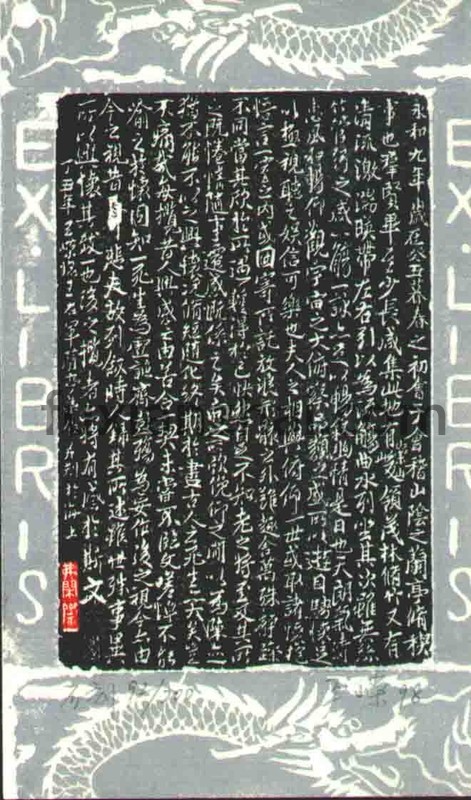 永和九年歲在癸丑暮春之初會于會稽山陰之蘭亭脩稧
事也羣賢畢至少長咸集此地有峻領茂林脩竹又有
清流激湍暎帶左右引以為流觴曲水列坐其次雖無絲
竹管弦之盛一觴一詠亦足以暢敘幽情是日也天朗氣清
惠風和暢仰觀宇宙之大俯察品類之盛所以遊目騁懷足
以極視聽之娛信可樂也夫人之相與俯仰一世或取諸懷抱
悟言一室之內或因寄所託放浪形骸之外雖趣舍萬殊靜躁
不同當其欣於所遇暫得於己快然自足不知老之將至及其所
之既惓情隨事遷感慨係之矣向之所欣俛仰之間以為陳迹
猶不能不以之興懷況脩短隨化終期於盡古人云死生亦大矣豈
不痛哉每攬昔人興感之由若合一契未嘗不臨文嗟悼不能
喻之於懷固知一死生為虛誕齊彭殤為妄作後之視今亦由
今之視昔悲夫故列敘時人錄其所述雖世殊事異
所以興懷其致一也後之攬者亦將有感於斯文
丁丑年
EX·LIBRIS
EX·LIBRIS
98